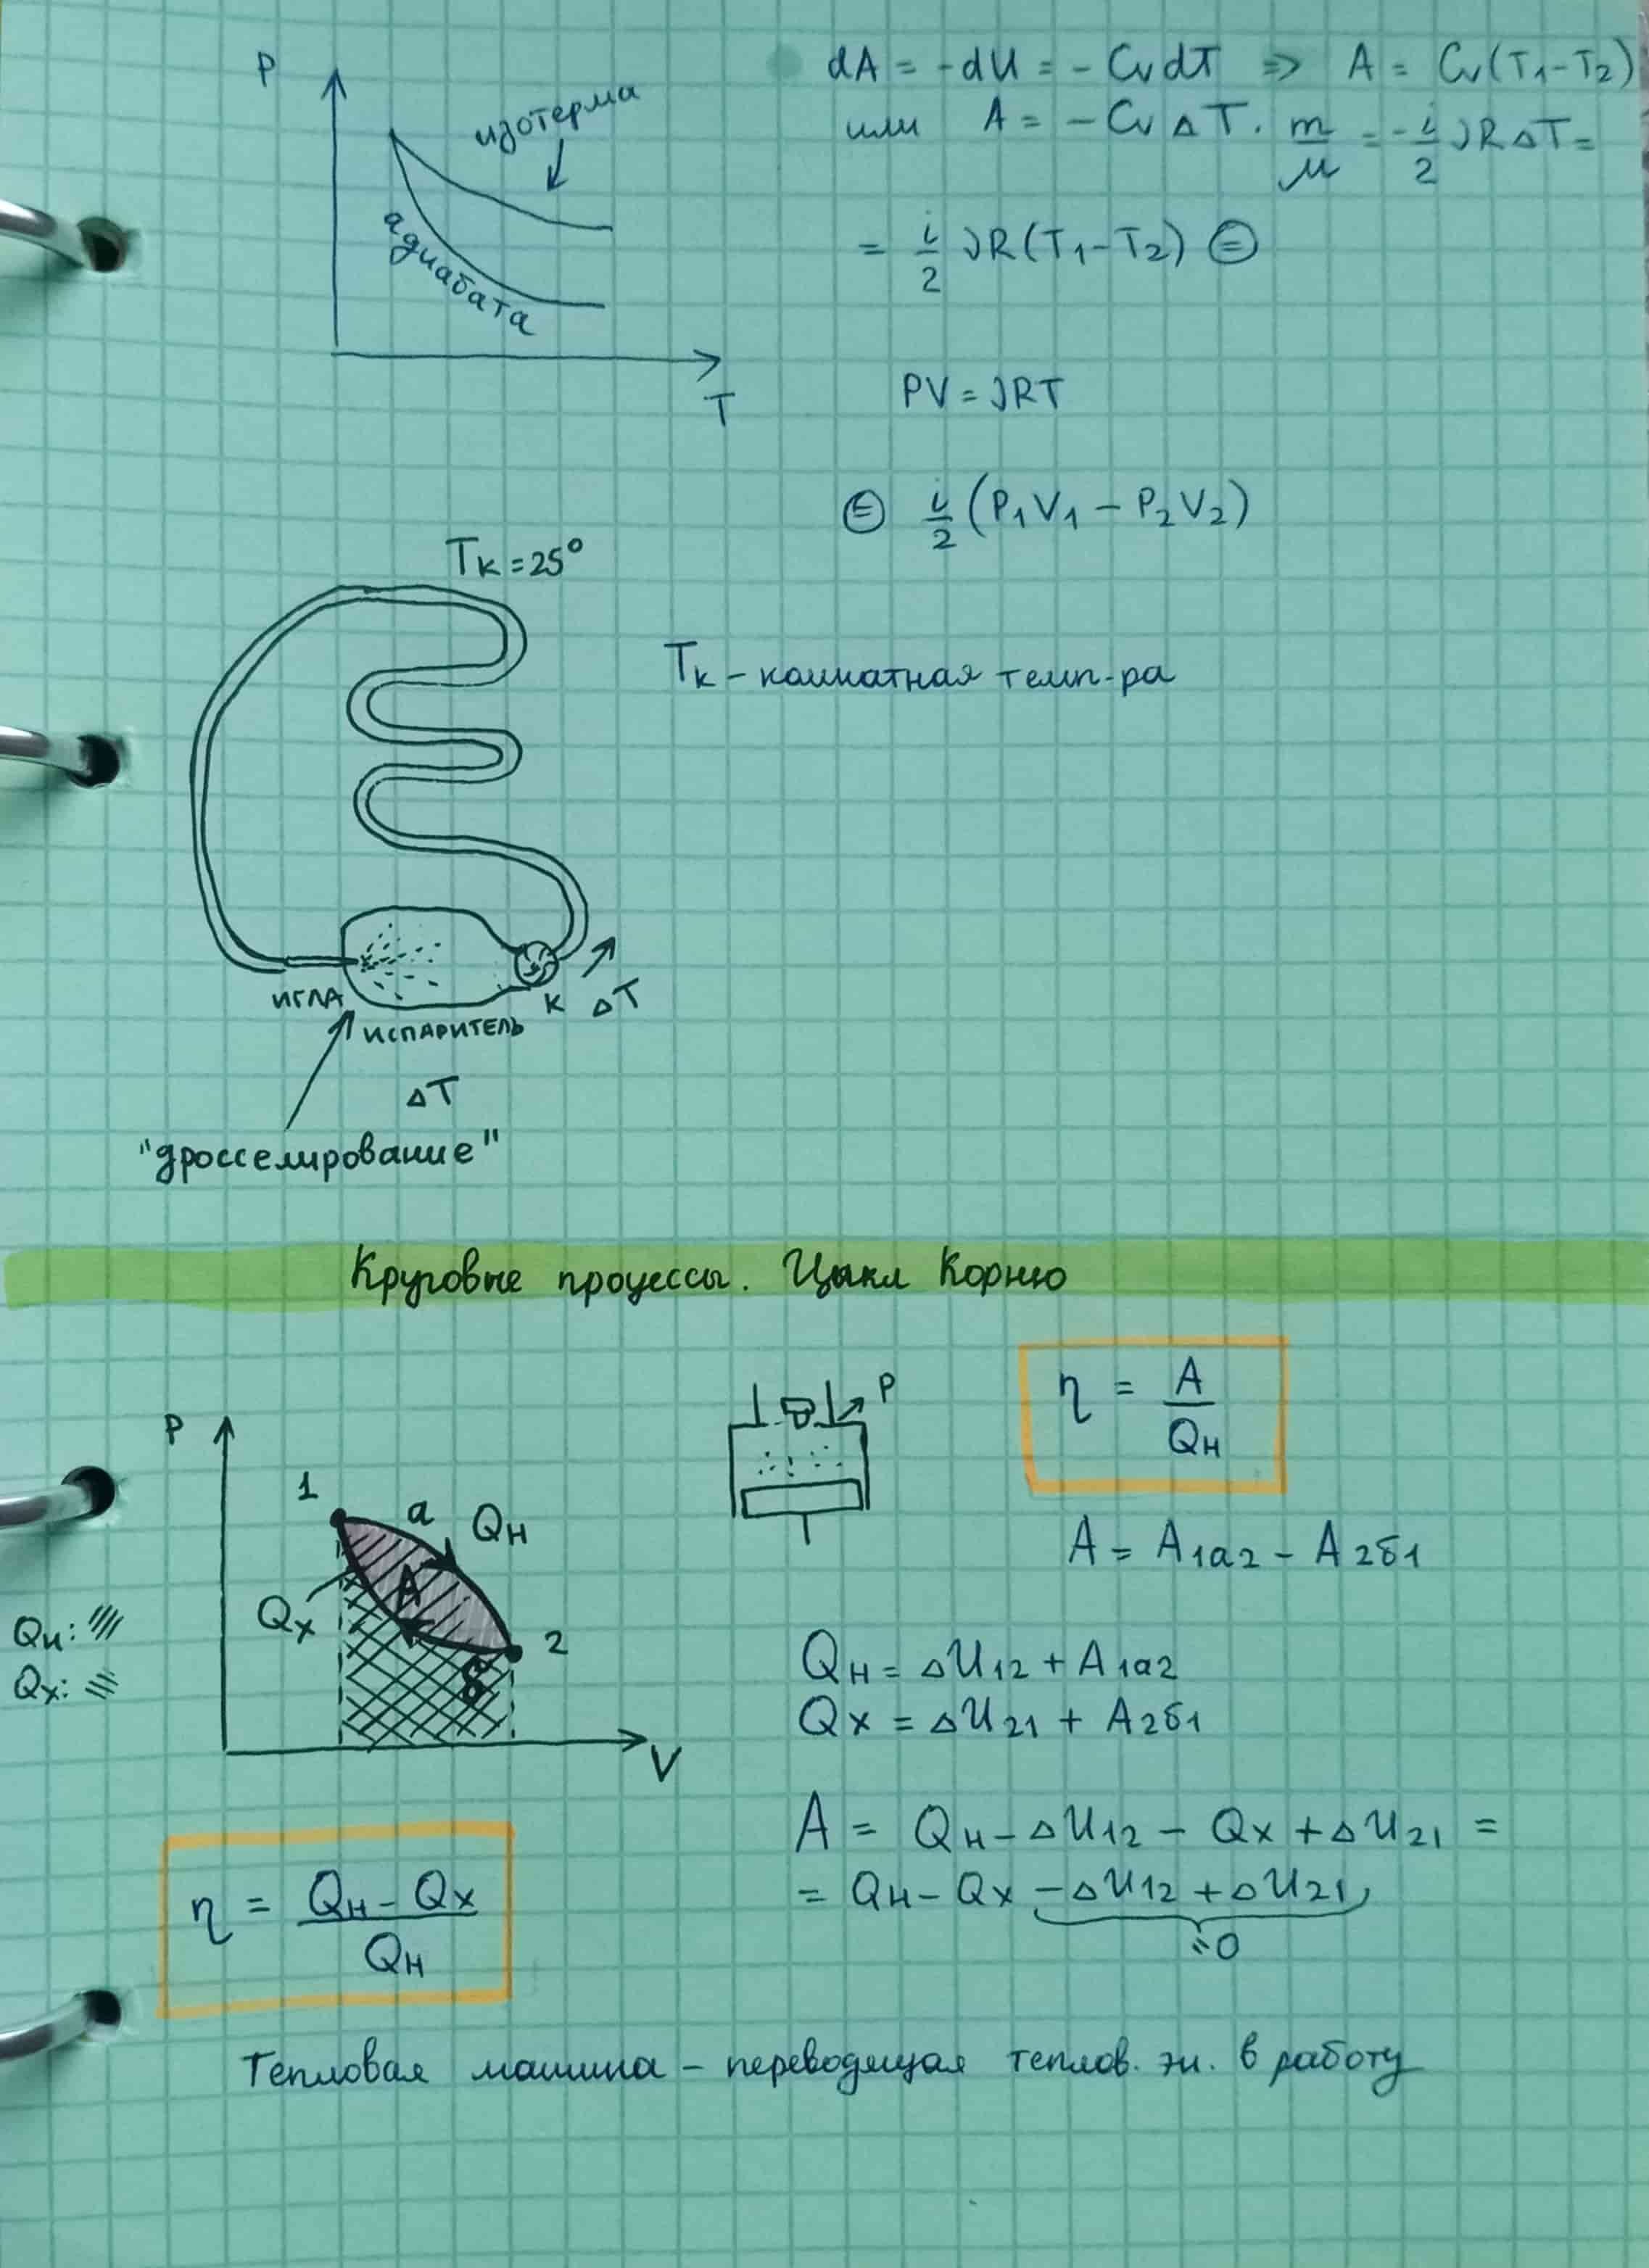 P
изотерма
адиабата
T
dA = -dU = - CvdT => A = Cv(T1-T2)
или A = - Cv ΔT · m/μ = - i/2 νRΔT =
= i/2 νR(T1-T2) ⊜
PV = νRT
⊜ i/2 (P1V1 - P2V2)
Tк = 25°
Tк - комнатная темп-ра
ИГЛА
ИСПАРИТЕЛЬ
К ΔT
ΔT
"дросселирование"
Круговые процессы. Цикл Корню
P
1
a
Qн
A
Qх
2
б
V
Qн:
Qх:
P
η = A/Qн
A = A1a2 - A2б1
Qн = ΔU12 + A1a2
Qх = ΔU21 + A2б1
A = Qн - ΔU12 - Qх + ΔU21 =
= Qн - Qх - ΔU12 + ΔU21,
=0
η = Qн - Qх / Qн
Тепловая машина - переводящая теплов. эн. в работу